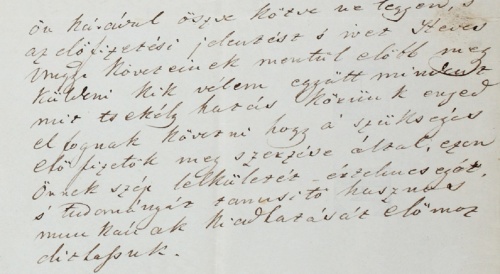 ön kárával öszve kötve ne legyen, s
az előfizetési jelentést s ivet Heves
Megye követeinek mentül előbb meg
küldeni kik vélem együtt mindent
mit tsekély hatás körünk enged
el fognak követni hogy a szükséges
előfizetők meg szerzése által, ezen
önnek szép lelkületét értelmességét,
s tudományát tanusító hasznos
munkának kiadhatását előmoz
dithassuk.